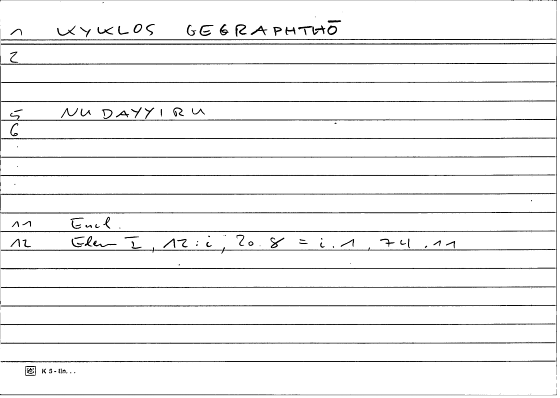 1 KYKLOS GEGRAPHTHŌ
2
5 NUDAYYIRU
6
11 Eucl.
12 Elem I, 12 : i, 20.8 = i.1, 74.11
K 5 - lin. . .